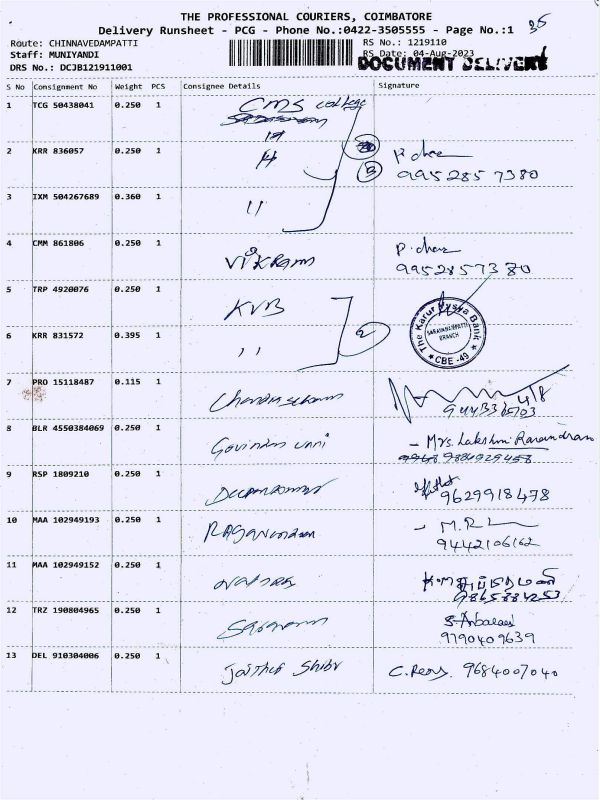 THE PROFESSIONAL COURIERS, COIMBATORE
Delivery Runsheet - PCG - Phone No.:0422-3505555 - Page No.:1 35
Route: CHINNAVEDAMPATTI RS No.: 1219110
Staff: MUNIYANDI RS Date: 04-Aug-2023
DRS No.: DCJB121911001 DOCUMENT DELIVERY
S No Consignment No Weight PCS Consignee Details Signature
1 TCG 50438041 0.250 1 CMS college
2 KRR 836057 0.250 1 " P. 
3 9952857380
3 IXM 504267689 0.360 1 "
4 CMM 861806 0.250 1 VIKRAM P.
9952857380
5 TRP 4920076 0.250 1 KVB
The Karur Vysya Bank
SARAVANAMPATTI
BRANCH
* CBE-49 *
6 KRR 831572 0.395 1 " 2
7 PRO 15118487 0.115 1 Chandrasekaran 4/8
8 BLR 4550384069 0.250 1 Govindan - Mrs. Lakshmi Ravindran
9884929458
9 RSP 1809210 0.250 1
9629918478
10 MAA 102949193 0.250 1 - M.R
9442106162
11 MAA 102949152 0.250 1
9865884253
12 TRZ 190804965 0.250 1 Saravanan
9790409639
13 DEL 910304006 0.250 1 C. 9684007040